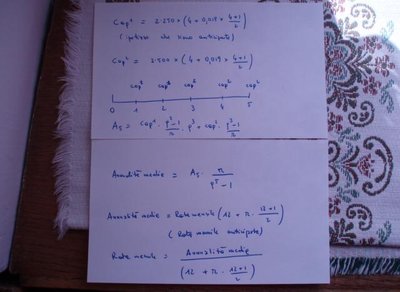 Cap¹ = 2.250 × (4 + 0,019 × 4+1/2)
(ipotesi che siano anticipate)
Cap² = 2.500 × (4 + 0,019 × 4+1/2)
cap¹ cap¹ cap¹ cap² cap²
0 1 2 3 4 5
A₅ = cap¹ · q³-1/r · q² + cap² · q²-1/r
Annualità medie = A₅ · r/q⁵-1
Annualità medie = Rata mensile (12 + r · 12+1/2)
(Rata mensile anticipata)
Rata mensile = Annualità media/(12 + r · 12+1/2)